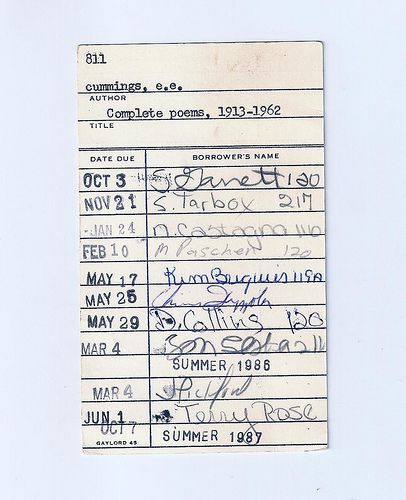 811
cummings, e.e.
AUTHOR
Complete poems, 1913-1962
TITLE
DATE DUE BORROWER'S NAME
OCT 3 S. Garrett 120
NOV 21 S. Tarbox 217
JAN 24 n. Castagna 110
FEB 10 M Paschen 120
MAY 17 Kim 119A
MAY 25
MAY 29 D. Collins 120
MAR 4
SUMMER 1986
MAR 4
JUN 1 Terry Rose
OCT 7 SUMMER 1987
GAYLORD 45